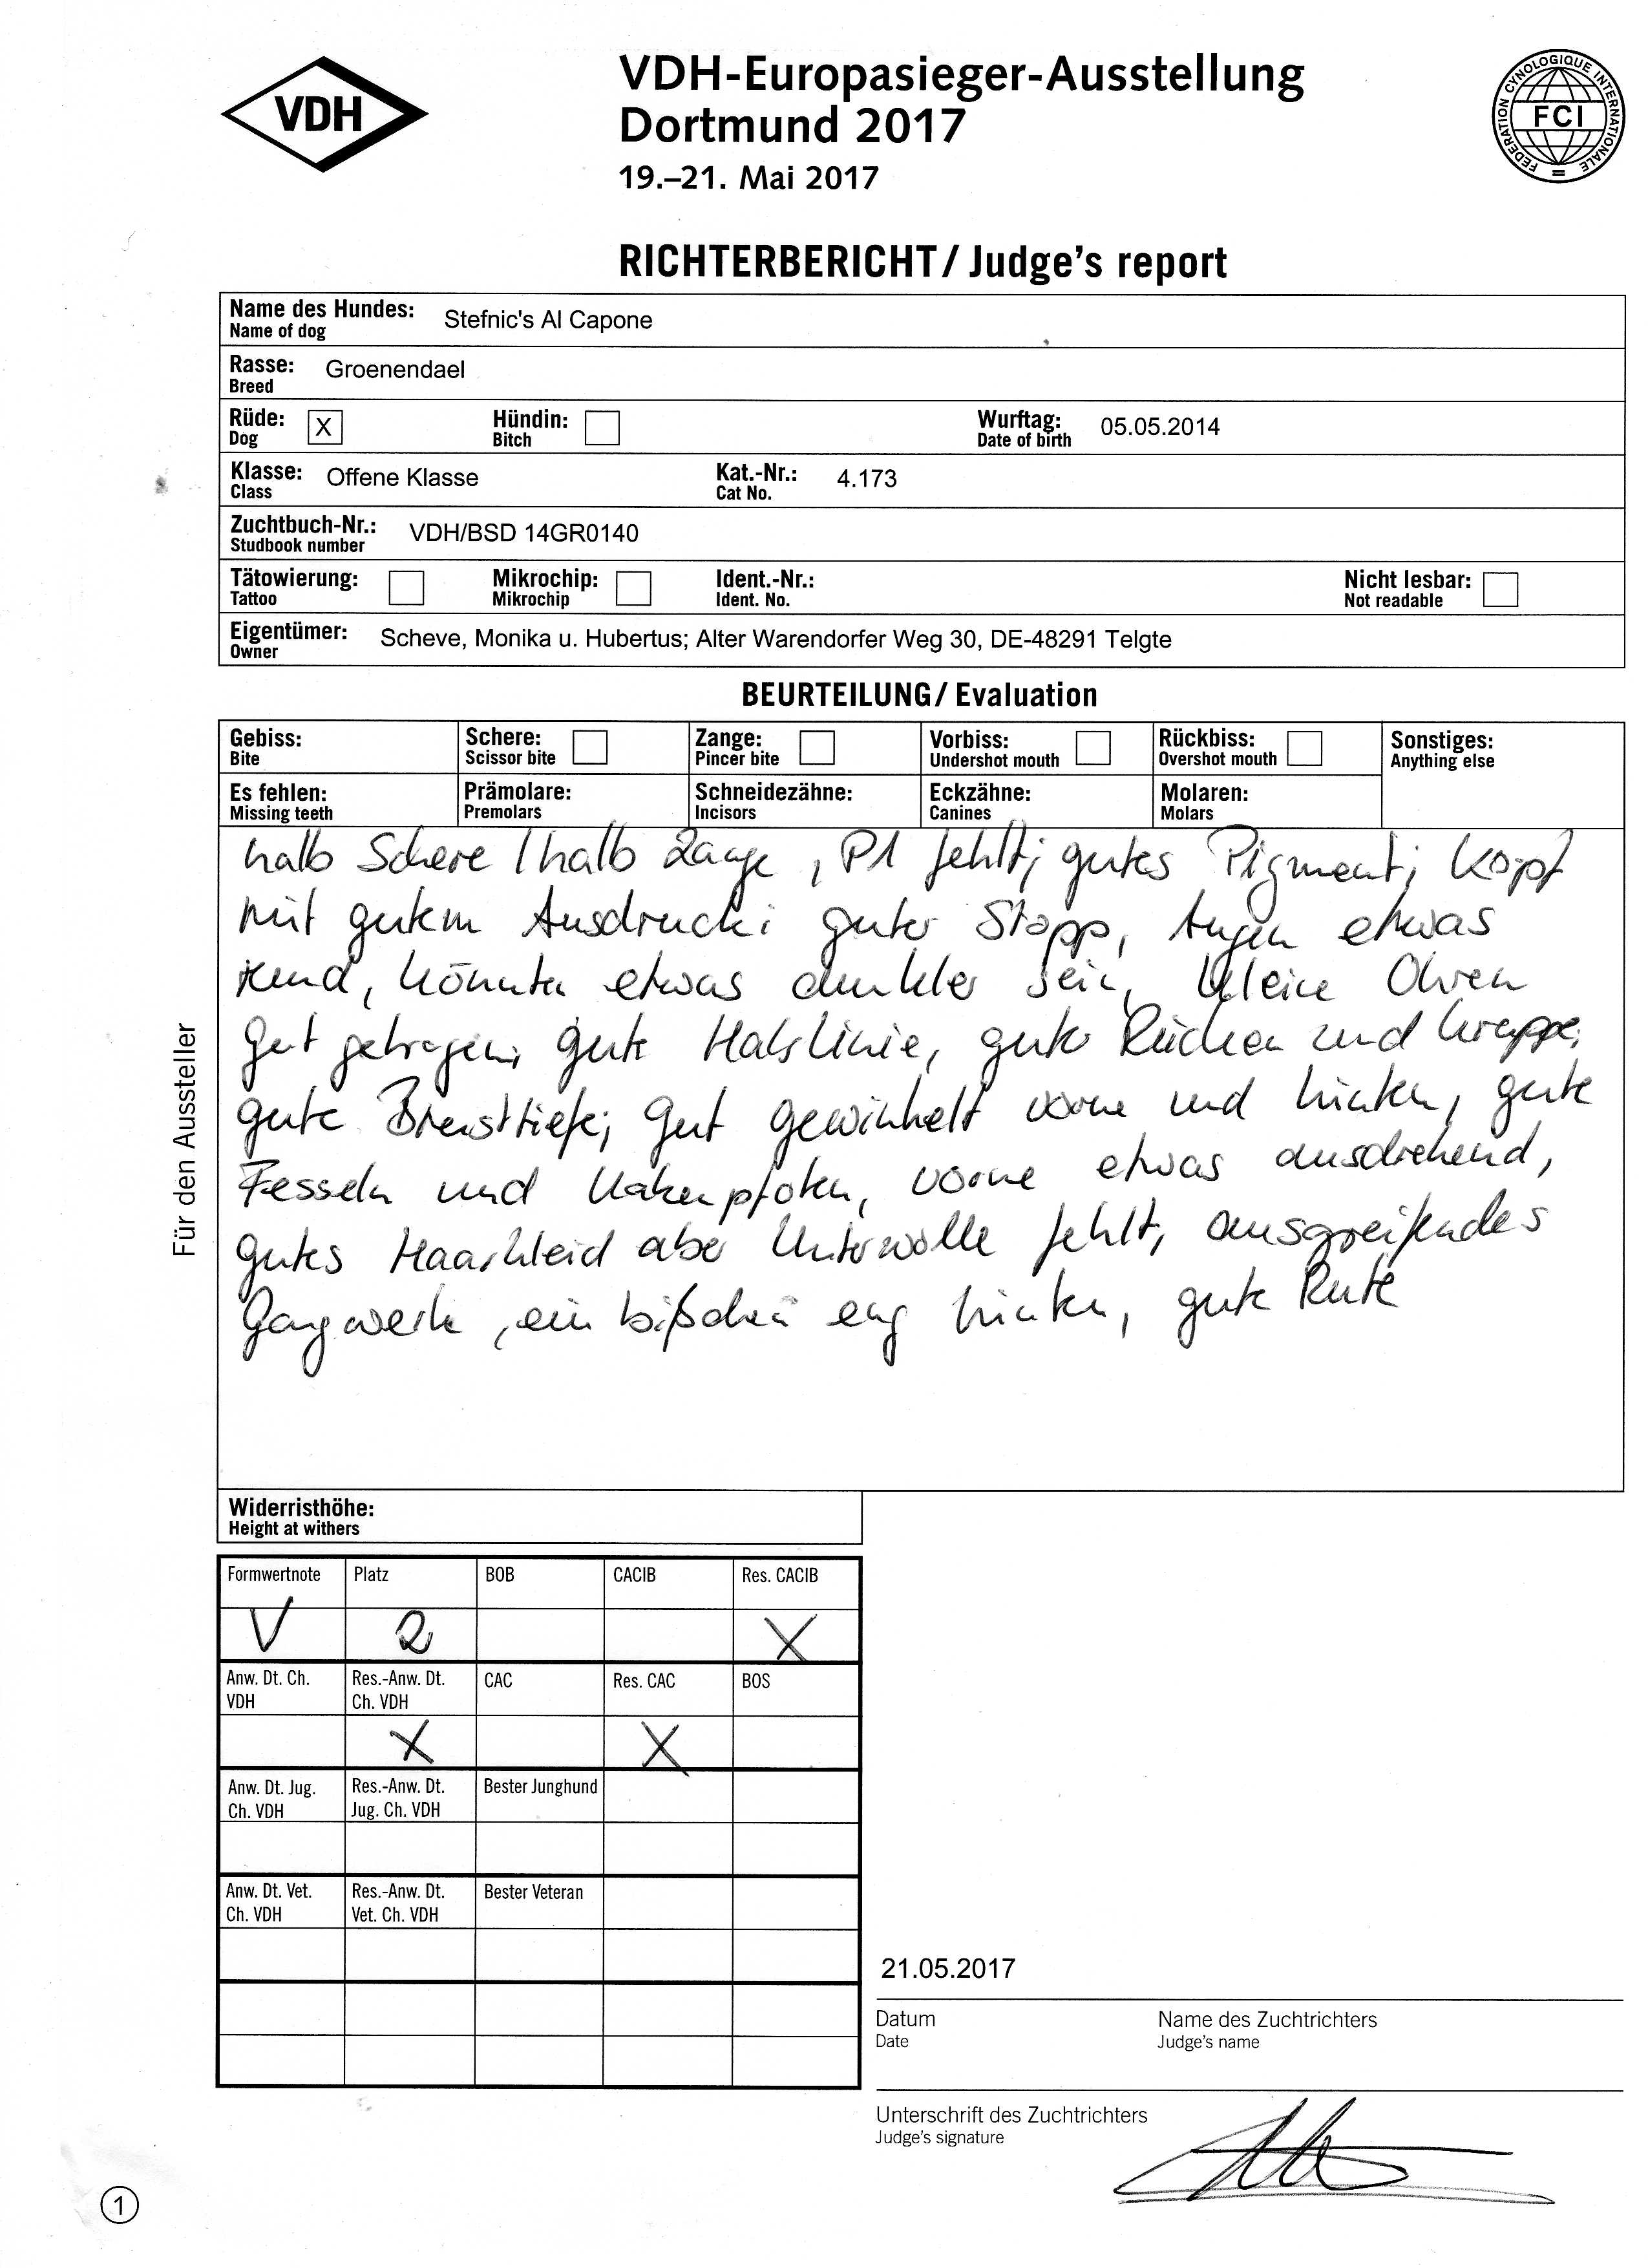 VDH
VDH-Europasieger-Ausstellung
Dortmund 2017
19.–21. Mai 2017
FEDERATION CYNOLOGIQUE INTERNATIONALE
FCI
RICHTERBERICHT/ Judge's report
Name des Hundes: Stefnic's Al Capone
Name of dog
Rasse: Groenendael
Breed
Rüde: X Hündin: Wurftag: 05.05.2014
Dog Bitch Date of birth
Klasse: Offene Klasse Kat.-Nr.: 4.173
Class Cat No.
Zuchtbuch-Nr.: VDH/BSD 14GR0140
Studbook number
Tätowierung: Mikrochip: Ident.-Nr.: Nicht lesbar:
Tattoo Mikrochip Ident. No. Not readable
Eigentümer: Scheve, Monika u. Hubertus; Alter Warendorfer Weg 30, DE-48291 Telgte
Owner
BEURTEILUNG/ Evaluation
Gebiss: Schere: Zange: Vorbiss: Rückbiss: Sonstiges:
Bite Scissor bite Pincer bite Undershot mouth Overshot mouth Anything else
Es fehlen: Prämolare: Schneidezähne: Eckzähne: Molaren:
Missing teeth Premolars Incisors Canines Molars
halb Schere / halb Zange, P1 fehlt; gutes Pigment; Kopf
mit gutem Ausdruck; guter Stopp, Augen etwas
rund, könnten etwas dunkler sein, kleine Ohren
gut getragen, gute Halslinie, guter Rücken und Kruppe;
gute Brusttiefe; gut gewinkelt vorne und hinten, gute
Fesseln und Katzenpfoten, vorne etwas ausdrehend,
gutes Haarkleid aber Unterwolle fehlt, ausgreifendes
Gangwerk, ein bißchen eng hinten, gute Rute
Für den Aussteller
Widerristhöhe:
Height at withers
Formwertnote Platz BOB CACIB Res. CACIB
V 2 X
Anw. Dt. Ch. Res.-Anw. Dt. CAC Res. CAC BOS
VDH Ch. VDH
X X
Anw. Dt. Jug. Res.-Anw. Dt. Bester Junghund
Ch. VDH Jug. Ch. VDH
Anw. Dt. Vet. Res.-Anw. Dt. Bester Veteran
Ch. VDH Vet. Ch. VDH
21.05.2017
Datum Name des Zuchtrichters
Date Judge's name
Unterschrift des Zuchtrichters
Judge's signature
1